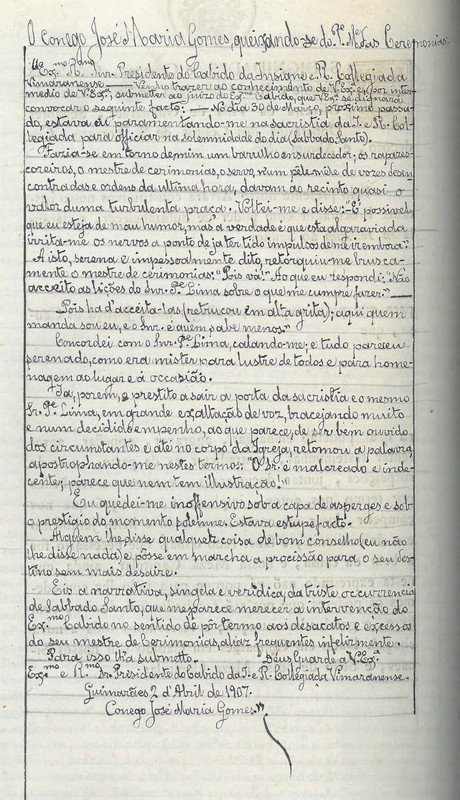 O conego José Maria Gomes, queixando-se do Pe. M. das Ceremonias.
Exmo. Rmo. Snr. Presidente do Cabido da Insigne e R. Collegiada
Vimaranense — Venho trazer ao conhecimento de V. Exa. e, por inter-
medio de V. Exa., submetter ao juizo do Exmo. Cabido, que V. Exa. se dignará
convocar o seguinte facto: — No dia 30 de Março, proximo passa-
do, estava eu paramentando-me na sacristia da I. e R. Col-
legiada para officiar na solemnidade do dia (Sabbado Santo).
Fazia-se em torno de mim um barulho ensurdecedor; os rapazes-
coreiros, o mestre de cerimonias, o servo, n'um pêle-mêle de vozes desen-
contradas e ordens da ultima hora, davam ao recinto quasi o
valor duma turbulenta praça. Voltei-me e disse: "É possivel
que eu esteja de mau humor, mas a verdade é que esta algaraviada
irrita-me os nervos a ponto de ja ter tido impulsos de me ir embora."
A isto, serena e impessoalmente dito, retorquiu-me brusca-
mente o mestre de cerimonias: "Pois vá!" Ao que eu respondi: "Não
acceito as lições do Snr. Pe. Lima sobre o que me cumpre fazer." —
Pois ha d'accêita-las (retrucou em alta grita); aqui quem
manda sou eu, e o Snr. é quem sabe menos."
Concordei com o Snr. Pe. Lima, calando-me; e tudo pareceu
serenado, como era mister para lustre de todos e para home-
nagem ao lugar e á occazião.
Ia, porem, o prestito a sair a porta da sacristia e o mesmo
Sr. Pe. Lima, em grande exaltação de voz, bracejando muito
e num decidido empenho, ao que parece, de ser bem ouvido
dos circumstantes e até no corpo da Igreja, retomou a palavra,
apostrophando-me nestes termos: "O Sr. é malcreado e inde-
cente; parece que nem tem illustração!"
Eu quedei-me inoffensivo sob a capa de asperges e sob
o prestigio do momento solemne. Estava estupefacto.
Alguem lhe disse qualquer coisa de bom conselho (eu não
lhe disse nada) e pôs-se em marcha a procissão para o seu des-
tino sem mais desaire.
Eis a narrativa, singela e veridica, da triste occurrencia
de Sabbado Santo, que me parece merecer a intervenção do
Exmo. Cabido no sentido de pôr termo aos desacatos e excessos
do seu mestre de Cerimonias, aliaz frequentes infelizmente.
Para isso lh'a submetto. Deus Guarde a V. Exa.
Exmo. e Rmo. Sr. Presidente do Cabido da I. e R. Collegiada Vimaranense.
Guimarães 2 d'Abril de 1907.
Conego José Maria Gomes."